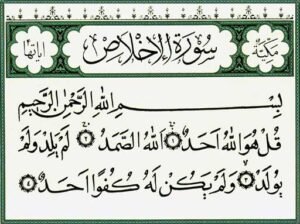 مكية سورة الإخلاص آياتها
بِسْمِ اللهِ الرَّحْمٰنِ الرَّحِيمِ
قُلْ هُوَ اللهُ أَحَدٌ ١ اللهُ الصَّمَدُ ٢ لَمْ يَلِدْ وَلَمْ
يُولَدْ ٣ وَلَمْ يَكُنْ لَهُ كُفُوًا أَحَدٌ ٤